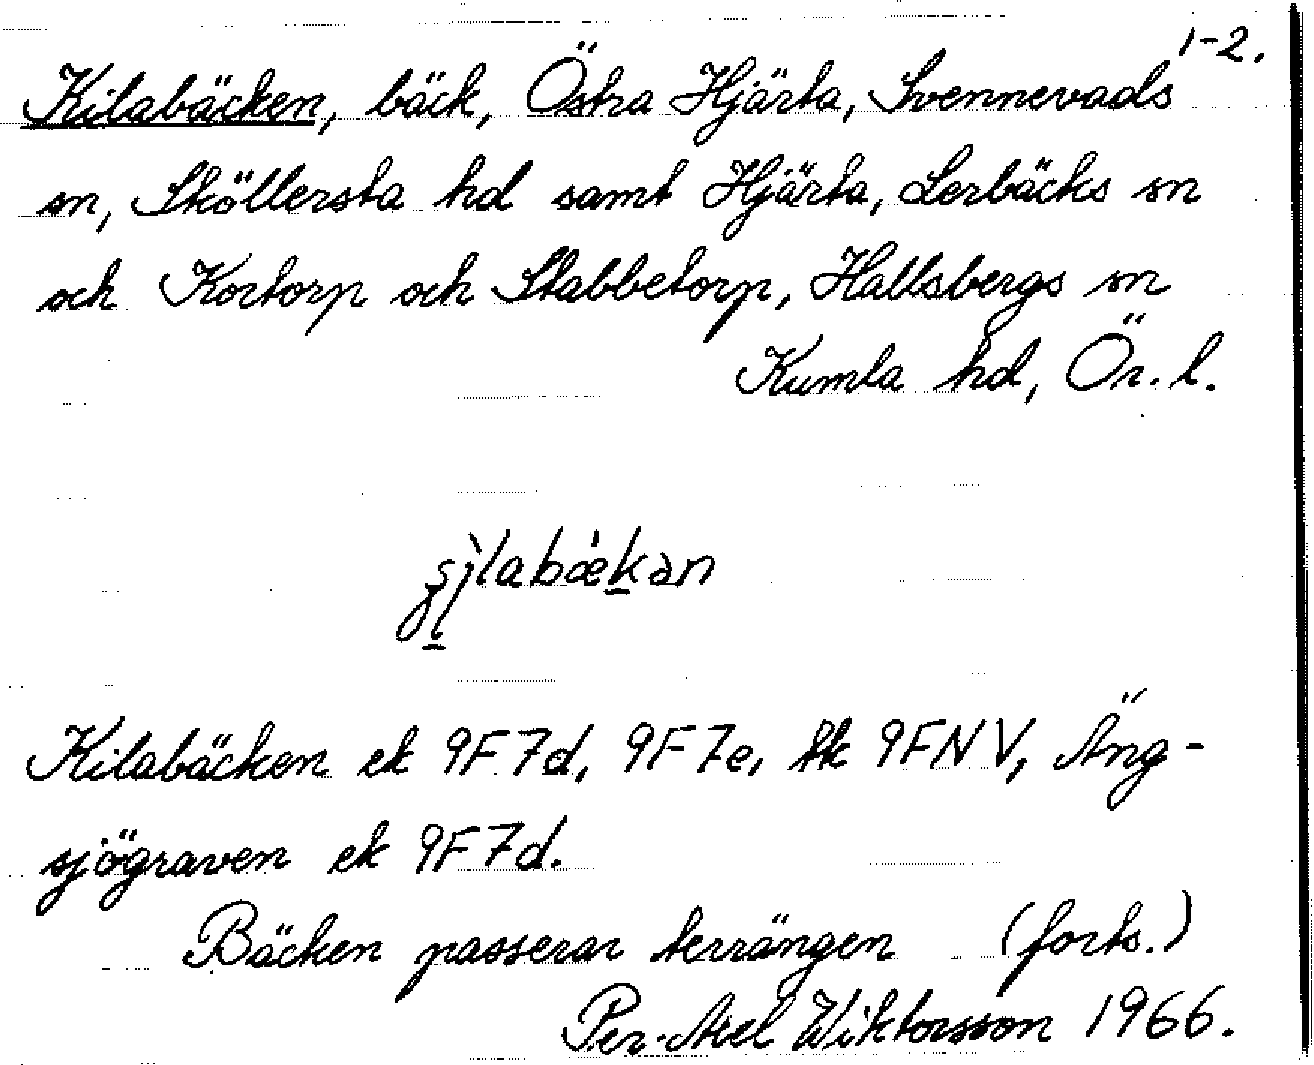 1-2.
Kilabäcken, bäck, Östra Hjärta, Svennevads
sn, Sköllersta hd samt Hjärta, Lerbäcks sn
och Kortorp och Stabbetorp, Hallsbergs sn
Kumla hd, Ör. l.
Kilabäcken ek 9F7d, 9F7e, tk 9FNV, Äng-
sjögraven ek 9F7d.
Bäcken passerar terrängen (forts.)
Per-Axel Wiktorsson 1966.